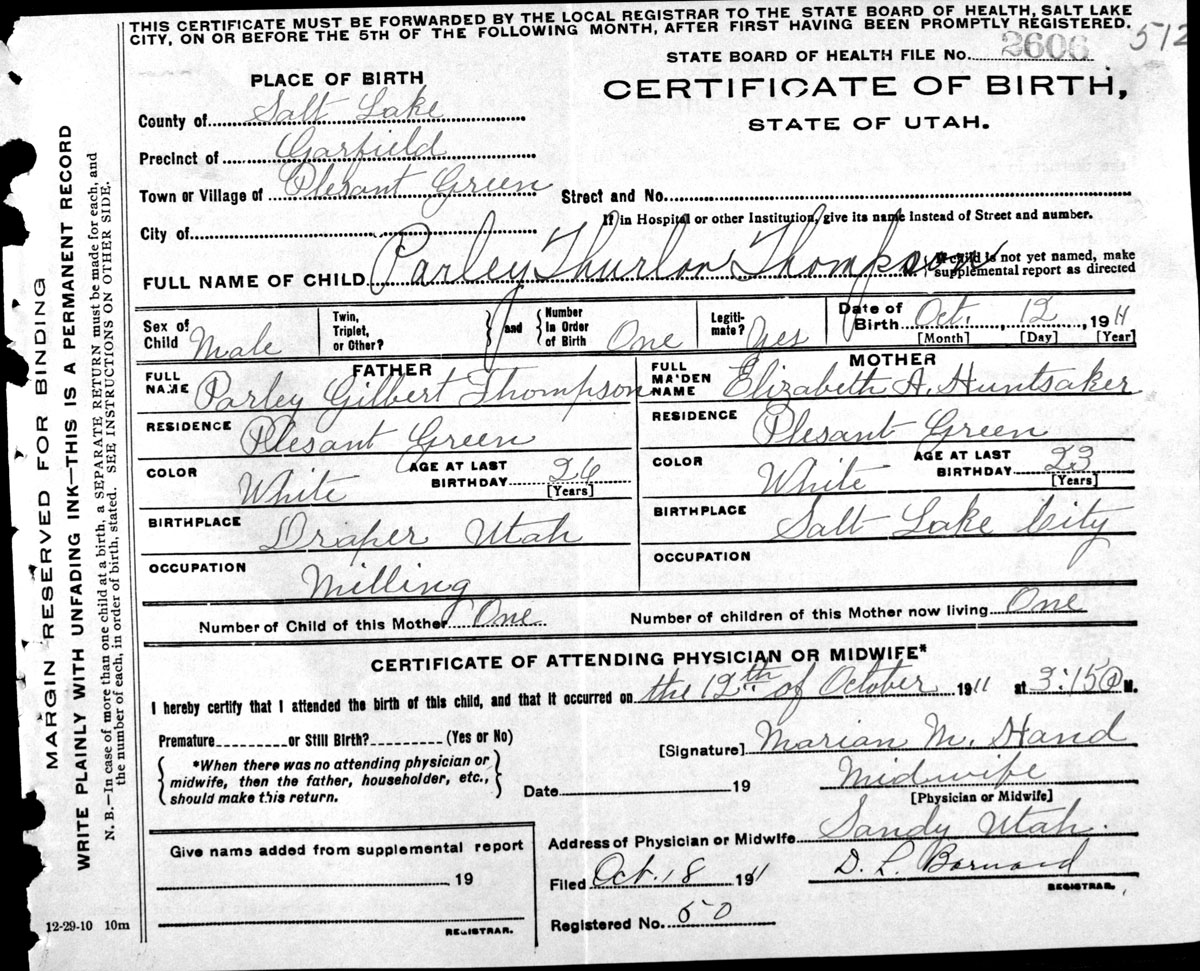 THIS CERTIFICATE MUST BE FORWARDED BY THE LOCAL REGISTRAR TO THE STATE BOARD OF HEALTH, SALT LAKE
CITY, ON OR BEFORE THE 5TH OF THE FOLLOWING MONTH, AFTER FIRST HAVING BEEN PROMPTLY REGISTERED.
512
STATE BOARD OF HEALTH FILE No. 2606
PLACE OF BIRTH
CERTIFICATE OF BIRTH,
STATE OF UTAH.
County of Salt Lake
Precinct of Garfield
Town or Village of Plesant Green
Street and No.
If in Hospital or other Institution, give its name instead of Street and number.
City of
FULL NAME OF CHILD Parley Thurlow Thompson
If child is not yet named, make
supplemental report as directed
Sex of Child Male
Twin, Triplet, or Other?
and
Number In Order of Birth One
Legiti-mate? Yes
Date of Birth Oct. 12, 1911
[Month] [Day] [Year]
FATHER
MOTHER
FULL NAME Parley Gilbert Thompson
FULL MAIDEN NAME Elizabeth A. Huntsaker
RESIDENCE Plesant Green
RESIDENCE Plesant Green
COLOR White
AGE AT LAST BIRTHDAY 26 [Years]
COLOR White
AGE AT LAST BIRTHDAY 23 [Years]
BIRTHPLACE Draper Utah
BIRTHPLACE Salt Lake City
OCCUPATION Milling
OCCUPATION
Number of Child of this Mother One
Number of children of this Mother now living One
CERTIFICATE OF ATTENDING PHYSICIAN OR MIDWIFE*
I hereby certify that I attended the birth of this child, and that it occurred on the 12th of October 1911 at 3:15 a M.
Premature or Still Birth? (Yes or No)
[Signature] Marian M. Hand
*When there was no attending physician or
midwife, then the father, householder, etc.,
should make this return.
Date 19
Midwife
[Physician or Midwife]
Address of Physician or Midwife Sandy Utah.
Give name added from supplemental report
19
REGISTRAR.
Filed Oct. 18 1911
D. L. Barnard
REGISTRAR.
Registered No. 50
12-29-10 10m
MARGIN RESERVED FOR BINDING
WRITE PLAINLY WITH UNFADING INK—THIS IS A PERMANENT RECORD
N. B.—In case of more than one child at a birth, a SEPARATE RETURN must be made for each, and
the number of each, in order of birth, stated. SEE INSTRUCTIONS ON OTHER SIDE.